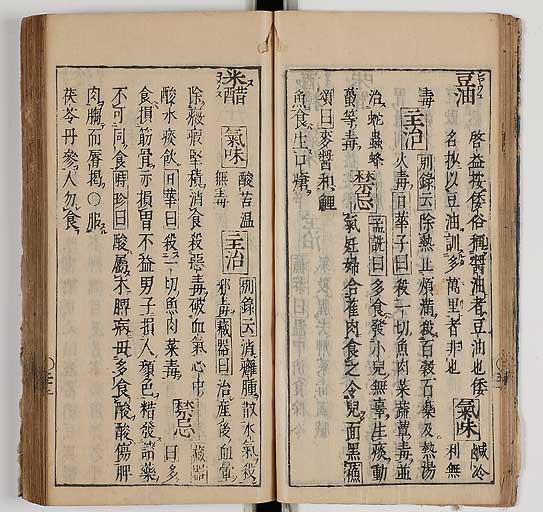 豆油
啓益按倭俗稱醬油者豆油也倭
名抄以豆油訓多萬里者非也 氣味 鹹冷利無
毒 主治 別錄云除熱止煩滿殺百穀石藥及熱湯
火毒日華子曰殺一切魚肉菜蔬蕈毒並
治蛇蟲蜂
蠆等毒 禁忌 孟詵曰多食發小兒無辜生痰動
氣妊婦合雀肉食之令兒面黑
頌曰麥醬和鯉
魚食生口瘡
米醋 氣味 酸苦温無毒 主治 別錄云消癰腫散水氣殺
邪毒藏器曰治產後血暈
除癥瘕堅積消食殺惡毒破血氣心中
酸水痰飲日華曰殺一切魚肉菜毒 禁忌 藏器曰多
食損筋骨亦損胃不益男子損人顏色
不可同食時珍曰酸屬木脾病毋多食酸酸傷脾
肉而脣揭○服
茯苓丹參人勿食